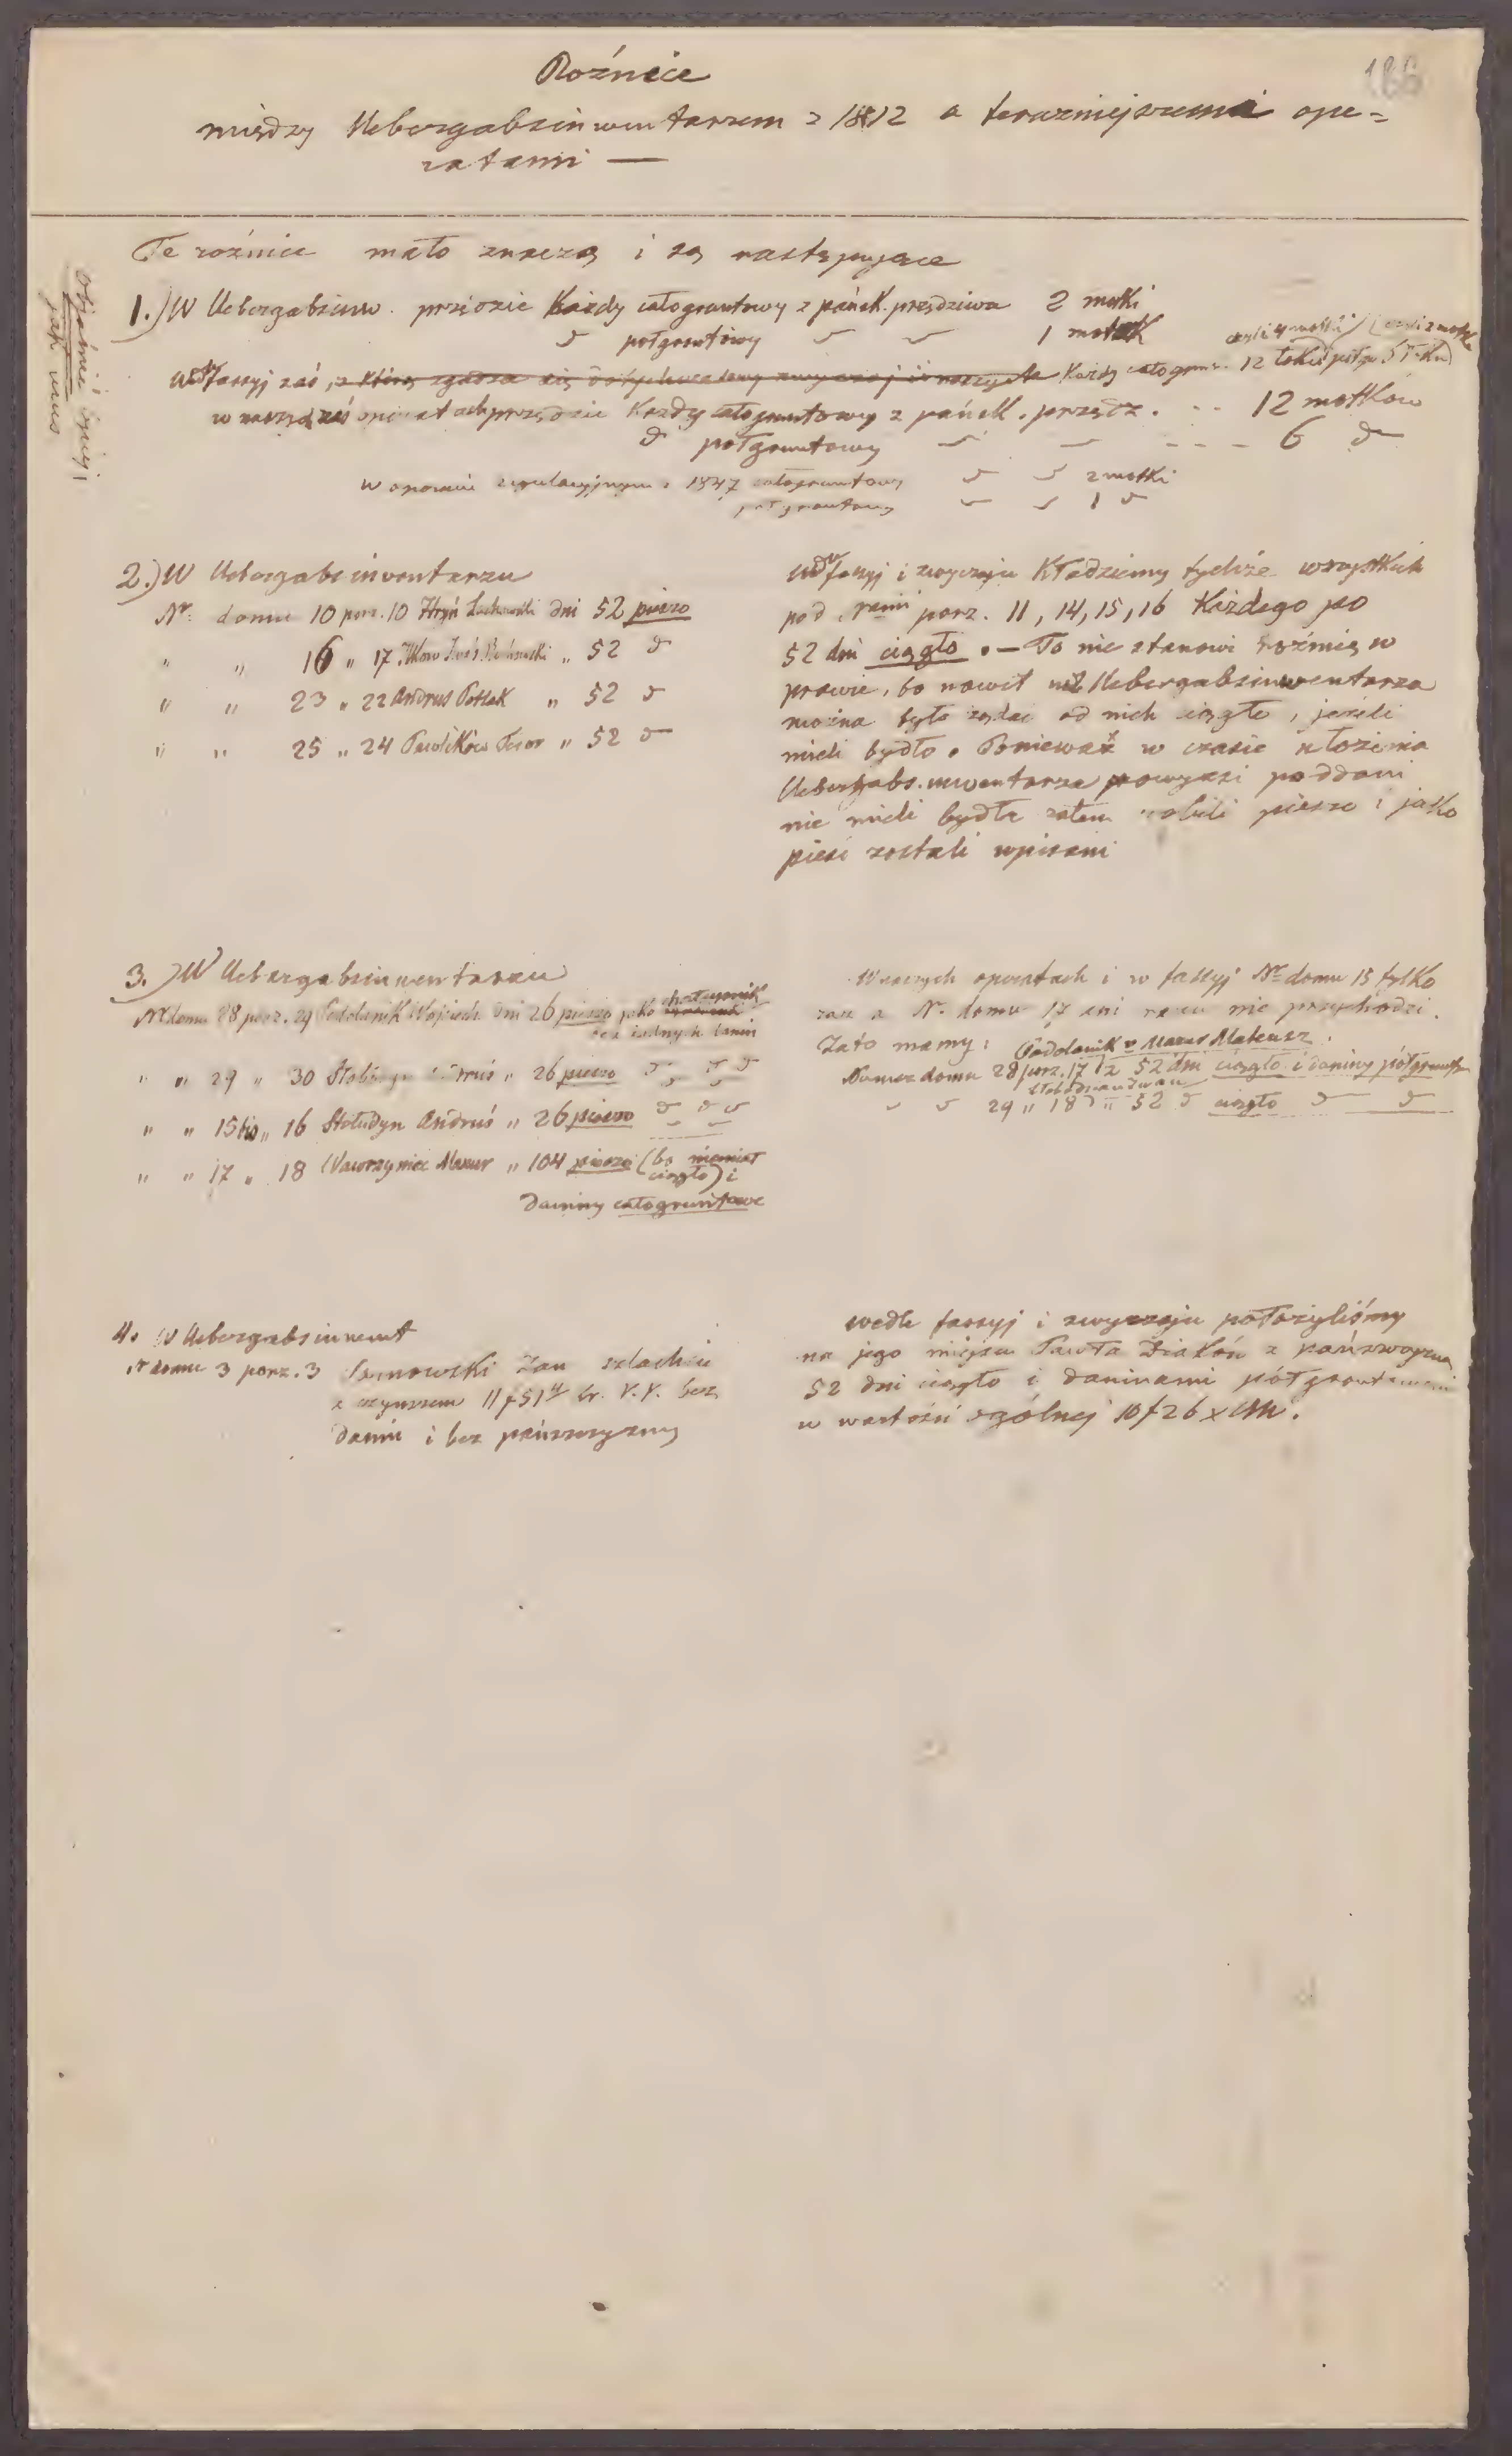 186
Rożnice
między Uebergabsinwentarzem z 1812 a teraźniejszemi ope=
ratami —
Te rożnice mało znaczą i są następujące
1.) W Uebergabsinw. przędzie Każdy całogruntowy z pańsk. przędziwa 2 motki
d połgruntowy 1 motek
wedł fassyj zaś, z którą zgadza się dotychczasowy zwyczaj Każdy całogrun. 12 łokci
w naszych zaś operatach przędzie Każdy całogruntowy z pańsk. przędz. - - 12 motków
d połgruntowy - - - - 6 d
W operacie regulacyjnym z 1847 całogruntowy 2 motki
połgruntowy 1
2.) W Uebergabsinventarzu
Nr. domu 10 porz. 10 Hryń dni 52 pieszo
" " 16 " 17 " 52 d
" " 23 " 22 Andrus " 52 d
" " 25 " 24 " 52 d
wedł fassyj i zwyczaju Kładziemy tychże wszystkich
pod Nrami porz. 11, 14, 15, 16 Każdego po
52 dni ciągło. — To nie stanowi rożnicę w
prawie, bo nawet Uebergabsinwentarza
można było żądać od nich ciągło, jeżeli
mieli bydło. Ponieważ w czasie ułożenia
Uebergabs.inwentarza powyżsi poddani
nie mieli bydła zatem robili pieszo i jako
piesi zostali wpisani
3.) W Uebergabsinwentarzu
Nr domu 28 porz. 29 Podolanik Wojciech dni 26 pieszo jako chałupnik
bez żadnych danin
" " 29 " 30 " 26 pieszo d d d
" " 15 " 16 Stołudyn Andruś " 26 pieszo d d d
" " 17 " 18 Wawrzyniec Mazur " 104 pieszo (bo niemiał
ciągło) i
daniny całogruntowe
W naszych operatach i w fassyj Nr domu 15 tylko
raz a Nr. domu 17 ani razu nie przychodzi.
Zato mamy: Podolanik v Mazur Mateusz
Numer domu 28 porz. 17 z 52 dni ciągło i daniny półgrunt.
29 " 18 " 52 d ciągło d d
4. W Uebergabsinwent
Nr domu 3 porz. 3 Jan szlachcic
z czynszem 11 f 51 kr. bez
danin i bez pańszczyzny
wedle fassyj i zwyczaju położyliśmy
na jego miejscu Pawła z pańszczyzną
52 dni ciągło i daninami półgruntowemi
w wartości ogólnej 10 f 26 x CM.